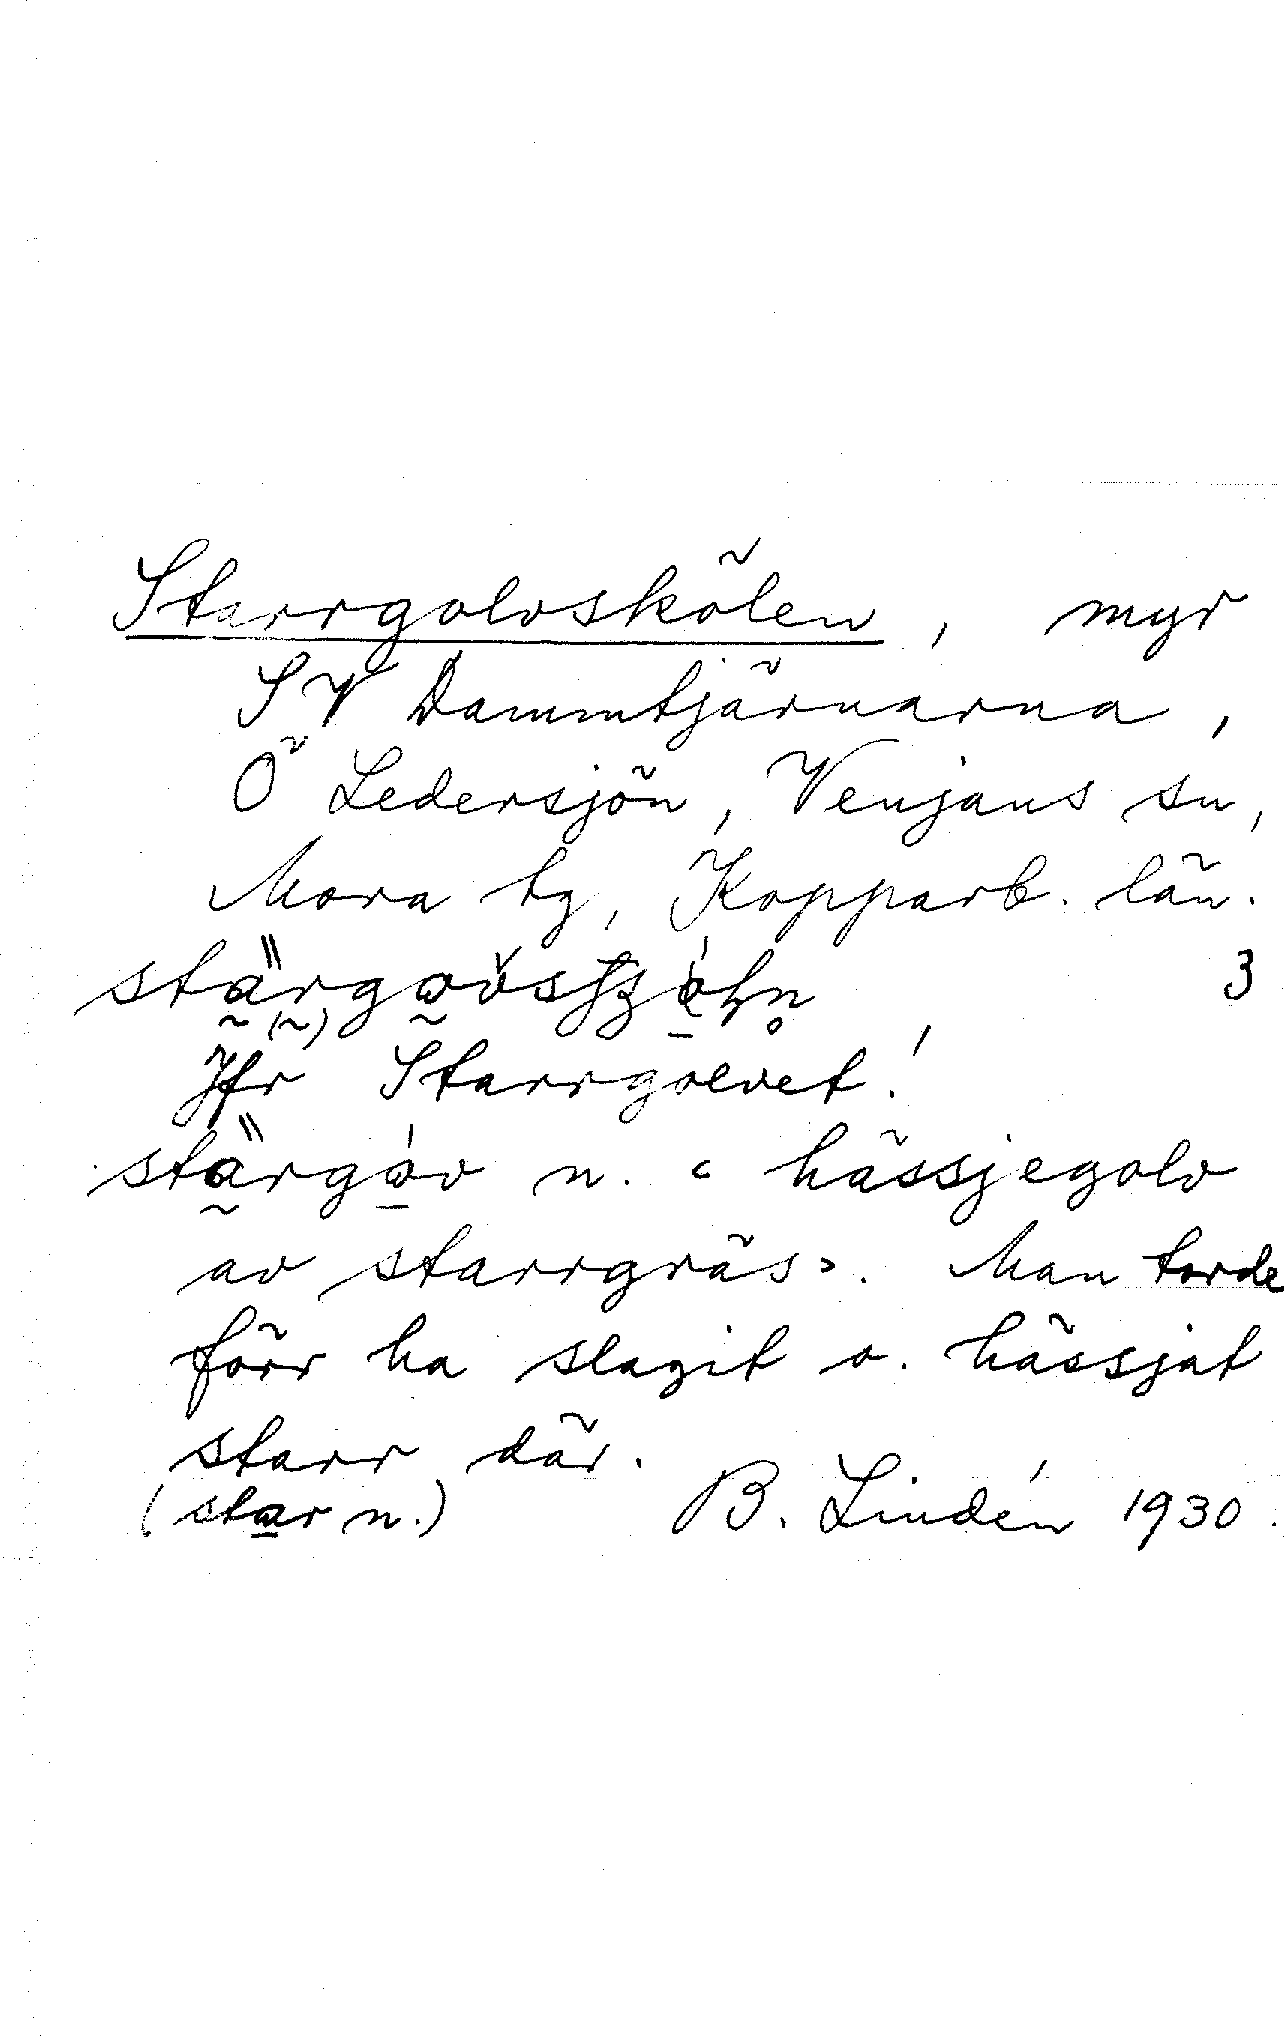 Starrgolvskölen, myr
SV Dammtjärnarna,
Ö Ledersjön, Venjans sn,
Mora tg, Kopparb. län.
3
Jfr Starrgolvet!
stärgåv n. "hässjegolv
av starrgräs". Man torde
förr ha slagit o. hässjat
starr där.
(star n.) B. Lindén 1930.